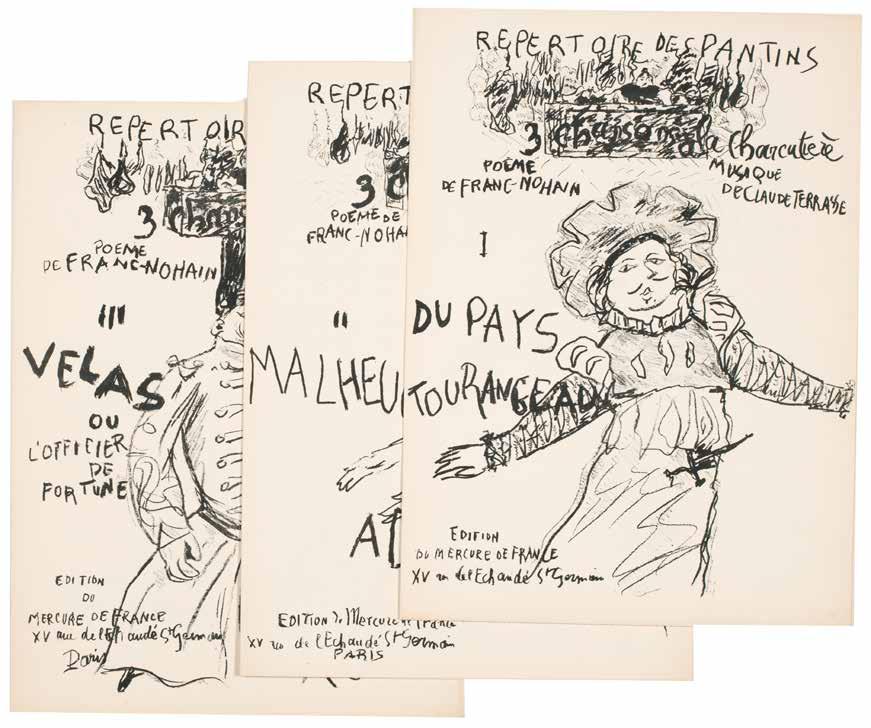 REPERTOIR
3 chans
POEME
DE FRANC-NOHAIN
III
VELAS
OU
L'OFFICIER
DE
FORTUNE
EDITION
DU
MERCURE DE FRANCE
XV rue de l'Echaudé St Germain
Paris
REPERT
3 c
POEME DE
FRANC-NOHA
II
MALHEU
AD
EDITION du Mercure de France
XV rue de l'Echaudé St Germain
PARIS
REPERTOIRE DES PANTINS
3 chansons à la charcutière
POEME
DE FRANC-NOHAIN
MUSIQUE
DE CLAUDE TERRASSE
I
DU PAYS
TOURANGEAU
EDITION
DU MERCURE DE FRANCE
XV rue de l'Echaudé St Germain